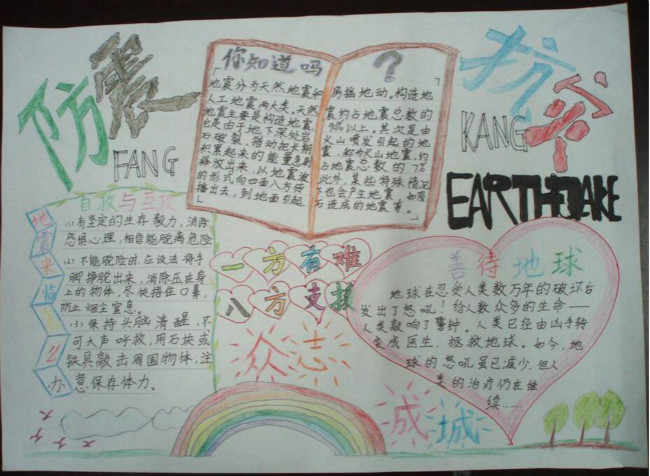 防震
FANG
你知道吗
?
地震分为天然地震和
人工地震两大类。天然
地震主要是构造地震,
它是由于地下深处岩
石破裂、错动把长期
积累起来的能量急剧
释放出来,以地震波
的形式向四面八方传
播出去,到地面引起
房摇地动。构造地
震约占地震总数的
以上。其次是由
火山喷发引起的地
震,称为火山地震,约
占地震总数的7%
此外,某些特殊情况
下也会产生地震,如
石造成的地震等。
抗灾
KANG
EARTHQUAKE
地震来临
办
自救与互救
(1)有坚定的生存毅力,消除
恐惧心理,相信能脱离危险
(2)不能脱险时,应设法将手
脚挣脱出来,消除压在身
上的物体,尽快捂住口鼻,
防止烟尘窒息。
(3)保持头脑清醒,不
可大声呼救,用石块或
铁具敲击周围物体,注
意保存体力。
一方有难
八方支援
众志
成城
善待地球
地球在忍受人类数万年的破坏后
发出了怒吼!给人数众多的生命——
人类敲响了警钟。人类已经由凶手转
变成医生,拯救地球。如今,地
球的怒吼虽已减少,但人
类的治疗仍在继
续……